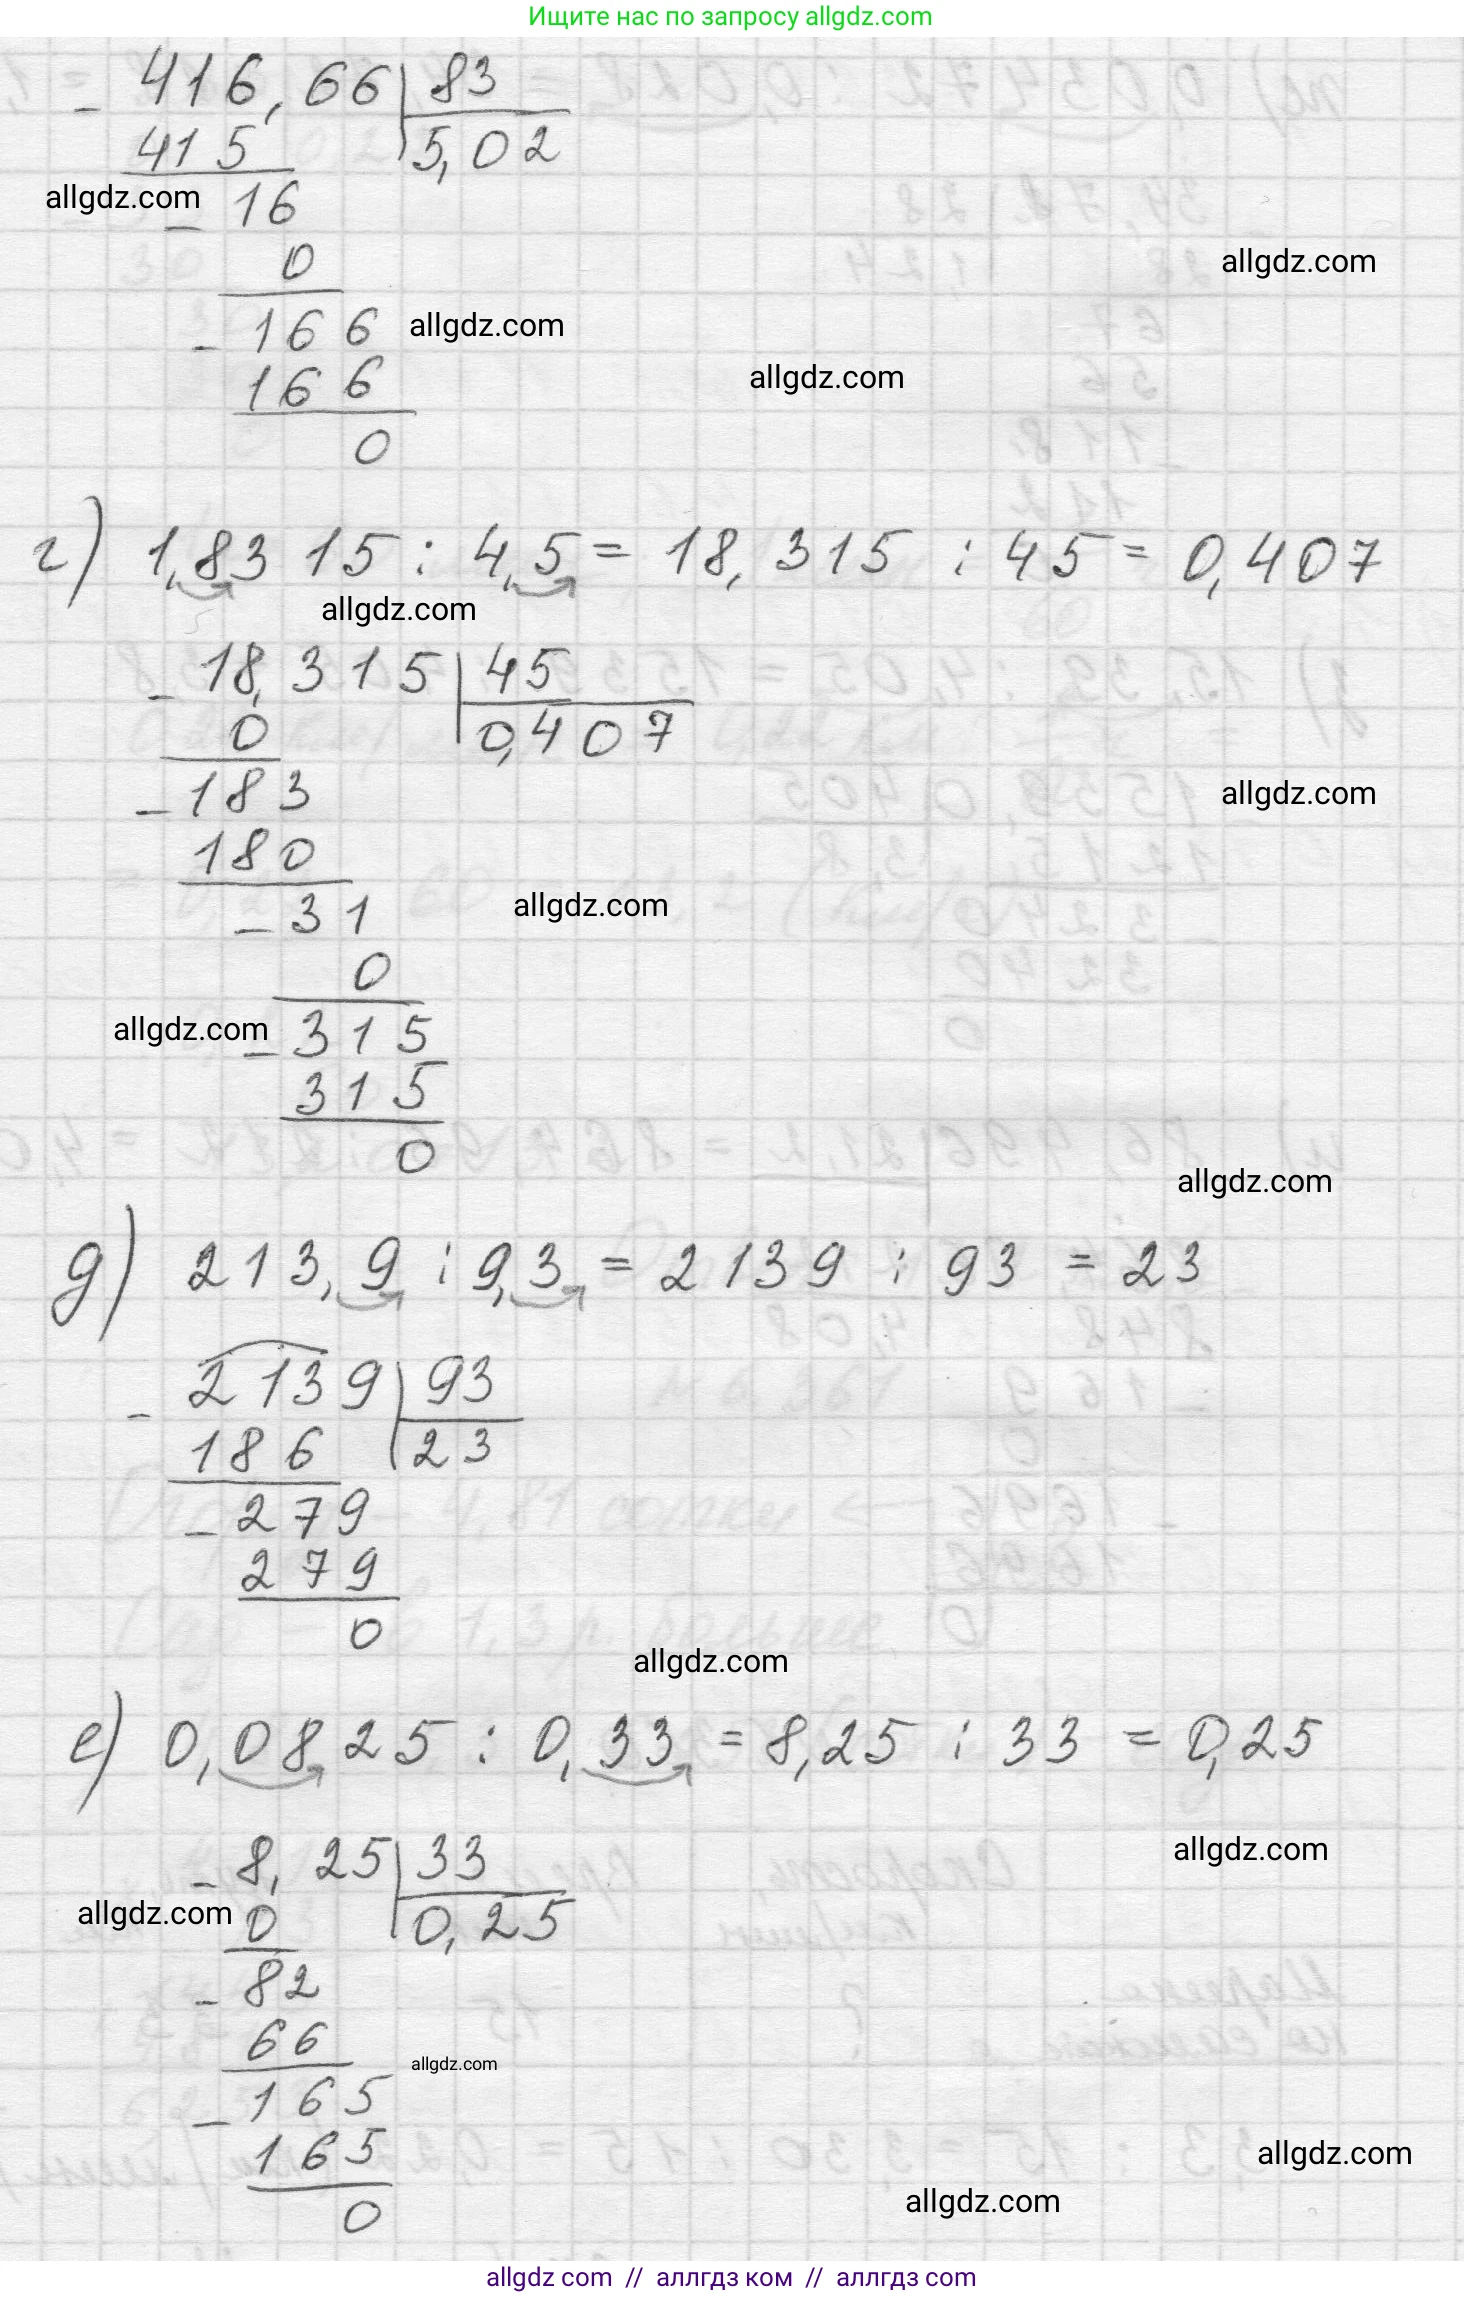 Ищите нас по запросу allgdz.com
- 416,66 | 83
415 5,02
allgdz.com - 16
0 allgdz.com
- 166 allgdz.com
166 allgdz.com
0
г) 1,83315 : 4,5 = 18,315 : 45 = 0,407
allgdz.com
- 18,315 | 45
0 0,407
- 183 allgdz.com
180
- 31 allgdz.com
0
allgdz.com - 315
315
0
allgdz.com
д) 213,9 : 9,3 = 2139 : 93 = 23
- 2139 | 93
186 23
- 279
279
0
allgdz.com
е) 0,0825 : 0,33 = 8,25 : 33 = 0,25
- 8,25 | 33 allgdz.com
allgdz.com 0 0,25
- 82
66
allgdz.com
- 165
165 allgdz.com
0 allgdz.com
allgdz com // аллгдз ком // аллгдз com